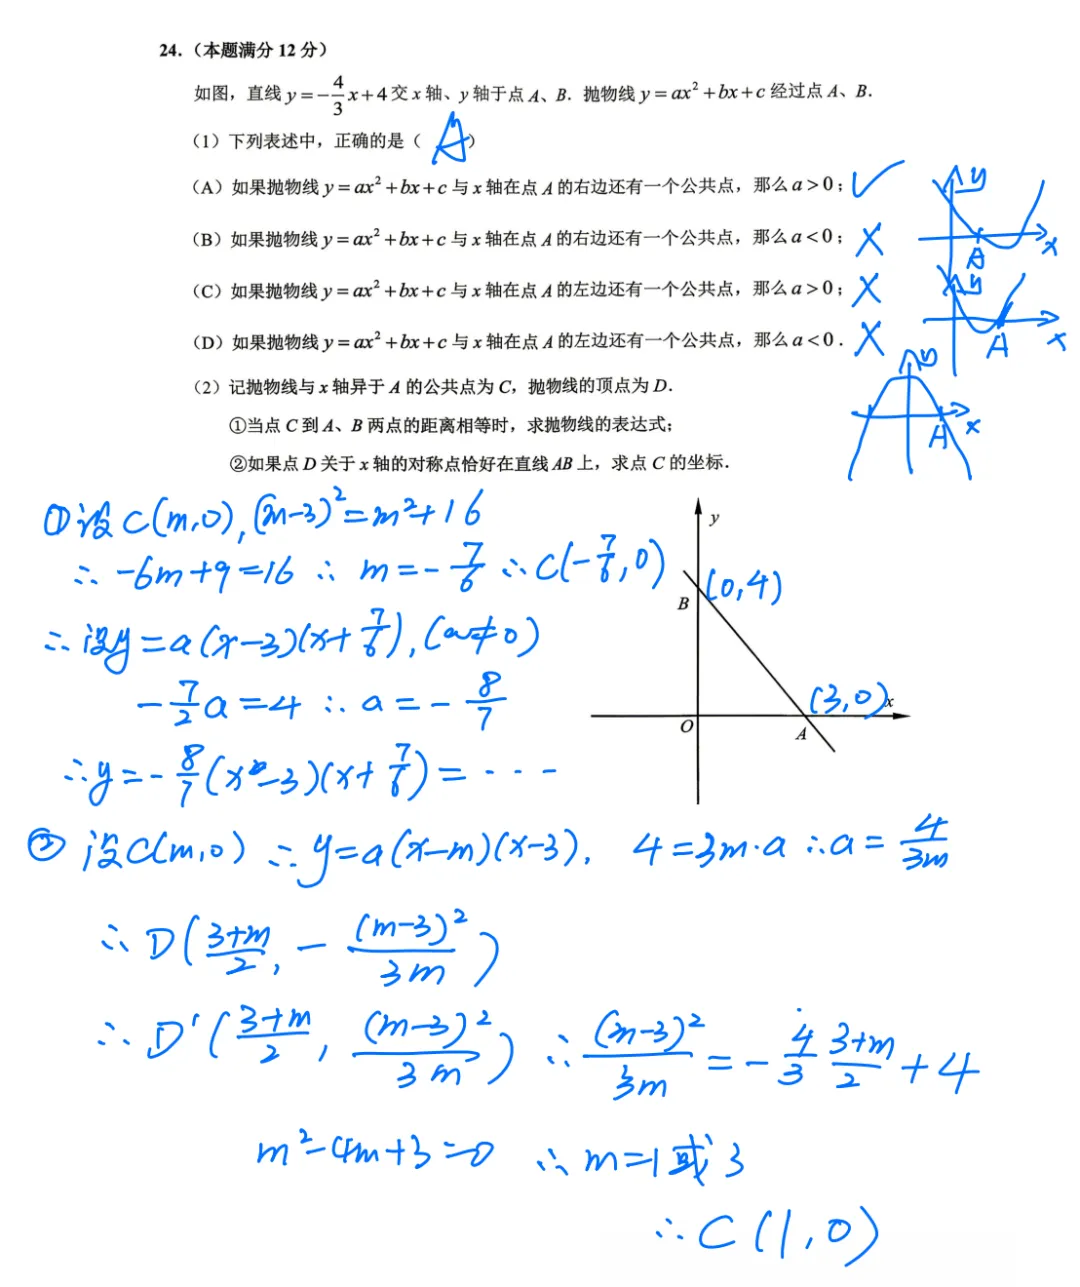 24.（本题满分 12 分）
如图，直线 y = -4/3 x + 4 交 x 轴、y 轴于点 A、B．抛物线 y = ax² + bx + c 经过点 A、B．
（1）下列表述中，正确的是（ A ）
（A）如果抛物线 y = ax² + bx + c 与 x 轴在点 A 的右边还有一个公共点，那么 a > 0； ✓
（B）如果抛物线 y = ax² + bx + c 与 x 轴在点 A 的右边还有一个公共点，那么 a < 0； ×
（C）如果抛物线 y = ax² + bx + c 与 x 轴在点 A 的左边还有一个公共点，那么 a > 0； ×
（D）如果抛物线 y = ax² + bx + c 与 x 轴在点 A 的左边还有一个公共点，那么 a < 0． ×
y
A
x
y
A
x
y
A
x
（2）记抛物线与 x 轴异于 A 的公共点为 C，抛物线的顶点为 D．
①当点 C 到 A、B 两点的距离相等时，求抛物线的表达式；
②如果点 D 关于 x 轴的对称点恰好在直线 AB 上，求点 C 的坐标．
① 设 C(m,0), (m-3)² = m²+16
∴ -6m+9=16 ∴ m = -7/6 ∴ C(-7/6,0)
∴ 设y = a(x-3)(x+7/6), (a≠0)
-7/2 a = 4 ∴ a = -8/7
∴ y = -8/7(x-3)(x+7/6) = ···
y
B
(0,4)
(3,0)
x
O
A
② 设C(m,0) ∴ y=a(x-m)(x-3), 4=3m·a ∴ a = 4/3m
∴ D(3+m/2, -(m-3)²/3m)
∴ D'(3+m/2, (m-3)²/3m) ∴ (m-3)²/3m = -4/3 3+m/2 + 4
m²-4m+3=0 ∴ m=1或3
∴ C(1,0)